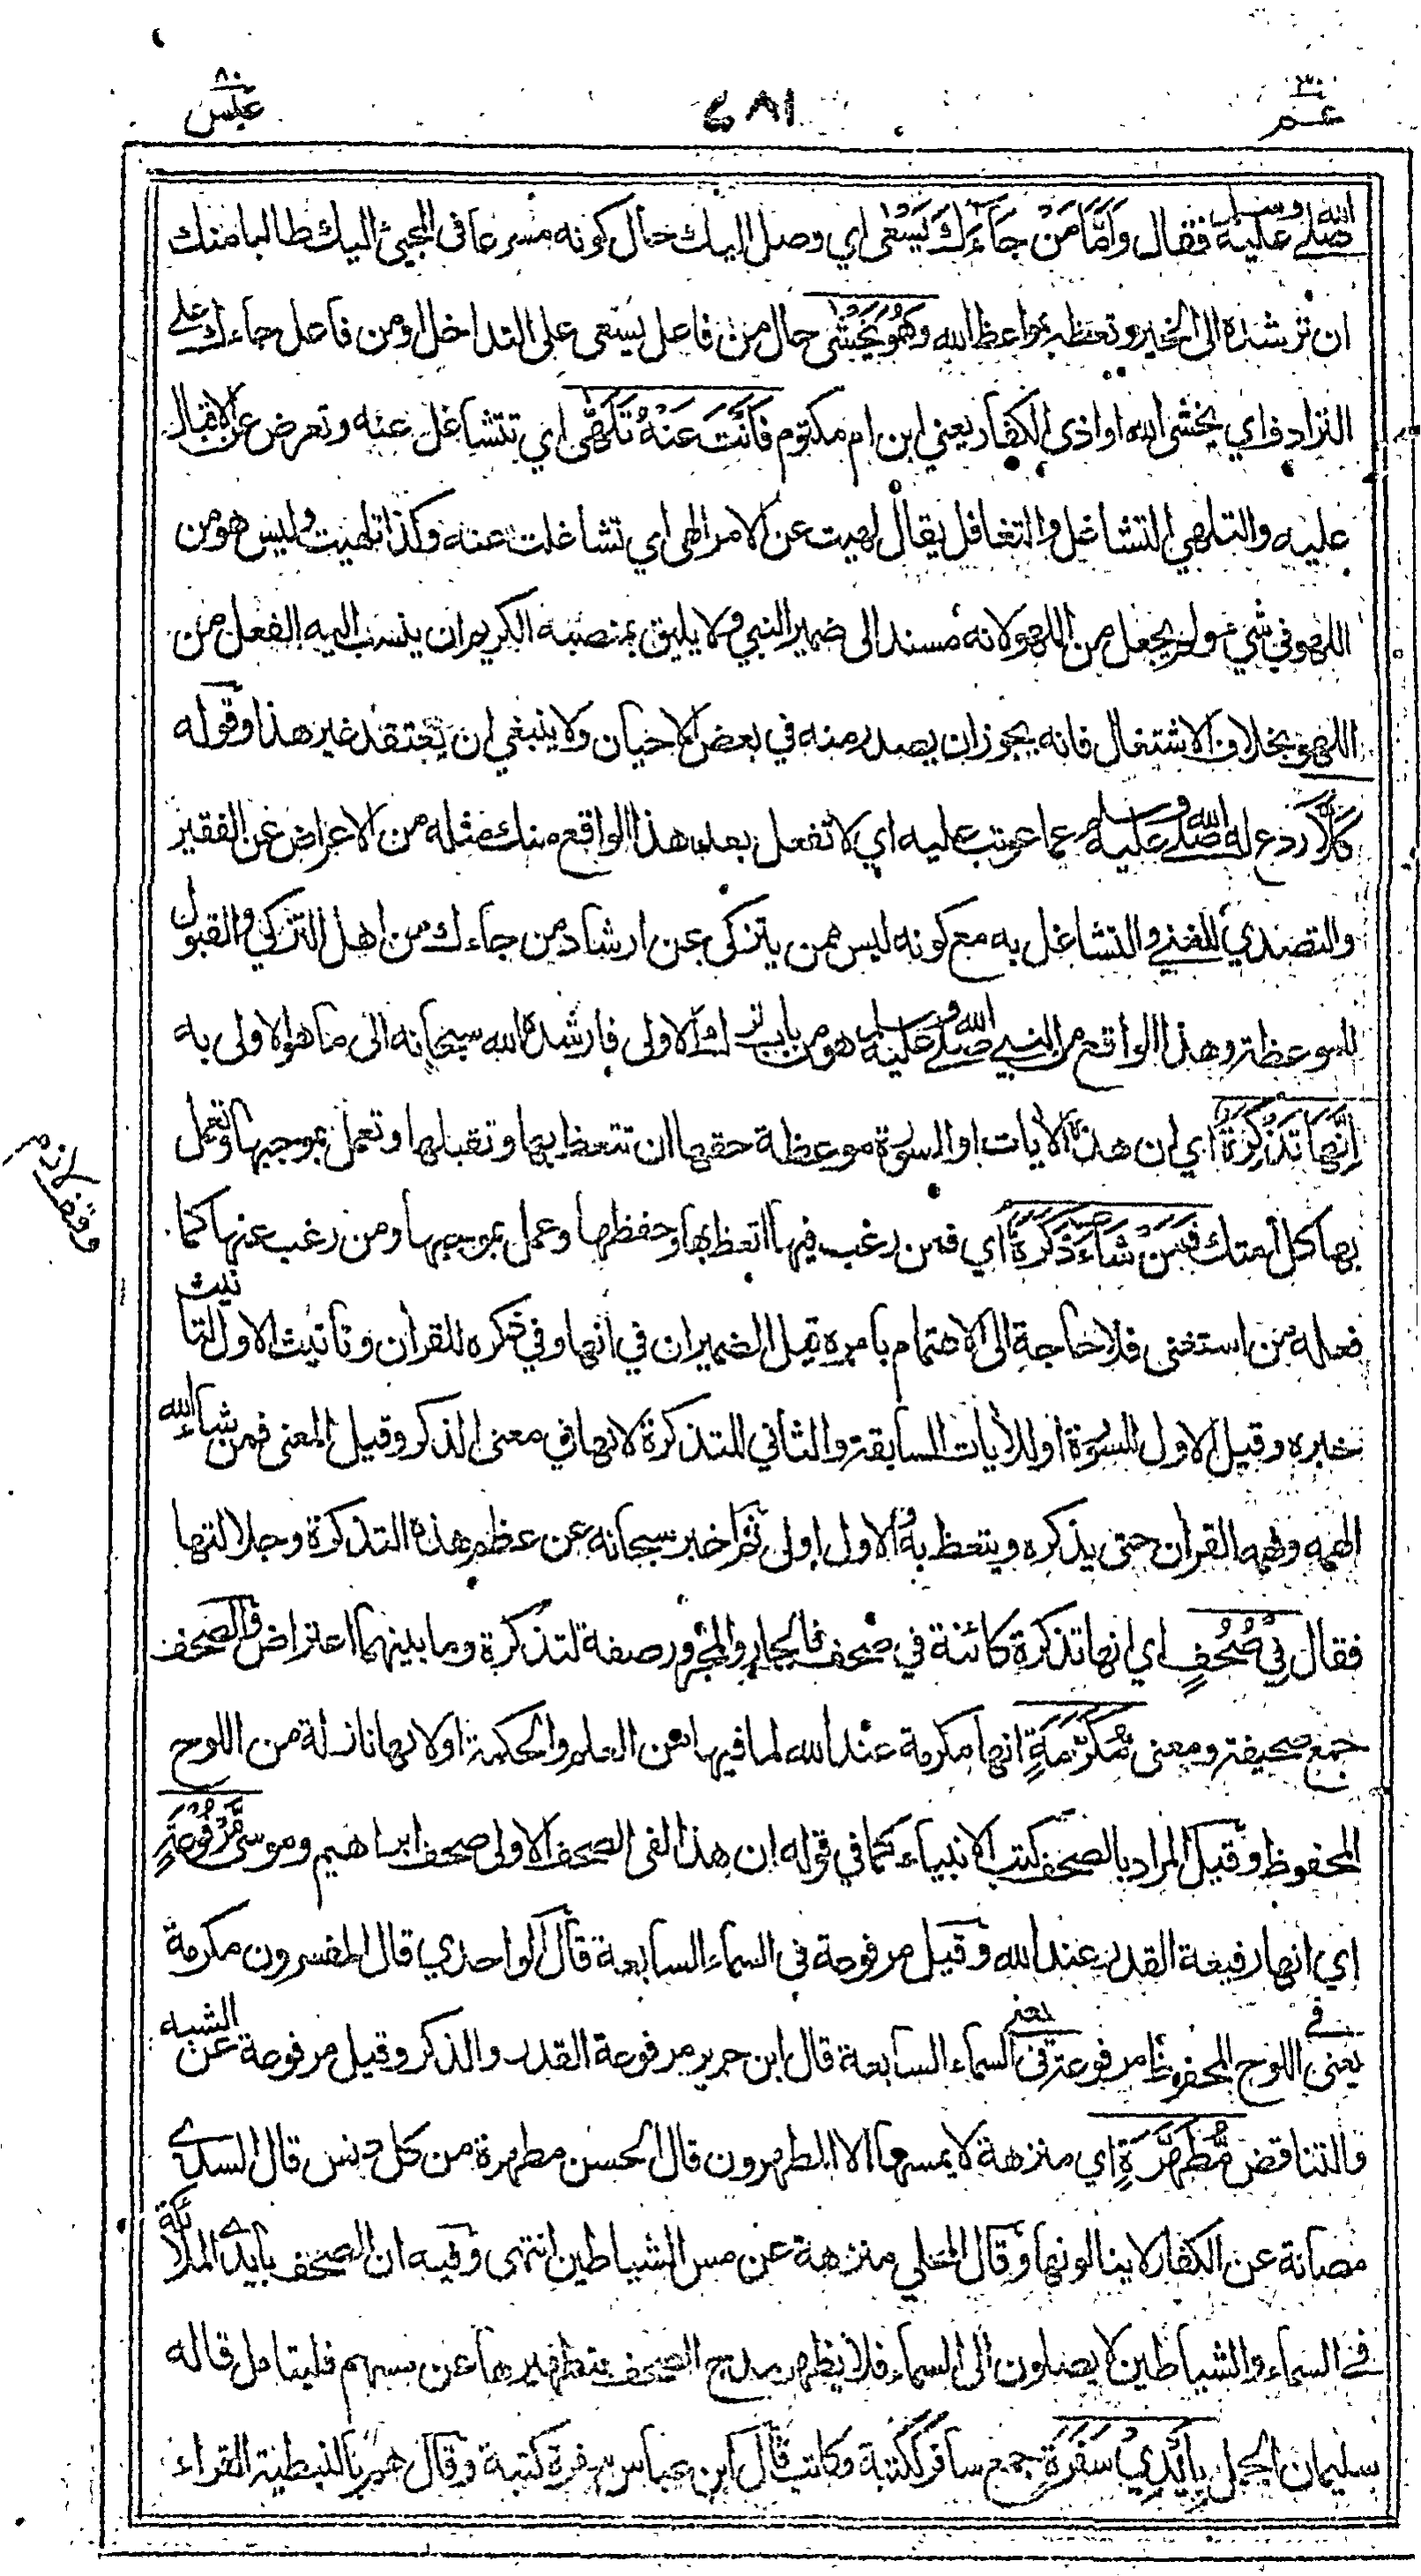 عم ٣٠
٤٨١
عبس ٨٠
صلى الله عليه وسلم فقال وَأَمَّا مَنْ جَآءَكَ يَسْعٰى اي وصل اليك حال كونه مسرعا في المجيئ اليك طالبا منك
ان ترشده الى الخير وتعظه بمواعظ الله وَهُوَ يَخْشٰى حال من فاعل يسعى على التداخل او من فاعل جاءك على
الترادف اي يخشى الله او اذى الكفار يعني ابن ام مكتوم فَأَنْتَ عَنْهُ تَلَهّٰى اي تتشاغل عنه وتعرض عن الاقبال
عليه والتلهي التشاغل والتغافل يقال لهيت عن الامر الهى اي تشاغلت عنه وكذا تلهيت وليس هو من
اللهو في شيء ولم يجعل من اللهو لانه مسند الى ضمير النبي ولا يليق بمنصبه الكريم ان ينسب اليه الفعل من
اللهو بخلاف الاشتغال فانه يجوز ان يصدر منه في بعض الاحيان ولا ينبغي ان يعتقد غير هذا وقوله
كَلَّا ردع له صلى الله عليه وسلم عما عوتب عليه اي لا تفعل بعد هذا الواقع منك مثله من الاعراض عن الفقير
والتصدي للغني والتشاغل به مع كونه ليس ممن يتزكى عن ارشاد من جاءك من اهل التزكي والقبول
للموعظة وهذا الواقع من النبي صلى الله عليه وسلم هو من باب ترك الاولى فارشده الله سبحانه الى ما هو الاولى به
إِنَّهَا تَذْكِرَةٌ اي ان هذه الأيات او السورة موعظة حقها ان تتعظ بها وتقبلها وتعمل بموجبها وتعمل
بها كل امتك فَمَنْ شَآءَ ذَكَرَهُ اي فمن رغب فيها اتعظ بها وحفظها وعمل بموجبها ومن رغب عنها كما
وقف لازم
فعله من استغنى فلا حاجة الى الاهتمام بامره قيل الضميران في انها وفي ذكره للقرأن وتانيث الاول لتانيث
خبره وقيل الاول للسورة او للأيات السابقة والثاني للتذكرة لانها في معنى الذكر وقيل المعنى فمن شاء الله
الهمه وفهمه القرأن حتى يذكره ويتعظ به والاول اولى ثم اخبر سبحانه عن عظم هذه التذكرة وجلالتها
فقال فِيْ صُحُفٍ اي انها تذكرة كائنة في صحف فالجار والمجرور صفة لتذكرة وما بينهما اعتراض والصحف
جمع صحيفة ومعنى مُّكَرَّمَةٍ انها مكرمة عند الله لما فيها من العلم والحكمة او لانها نازلة من اللوح
المحفوظ وقيل المراد بالصحف كتب الانبياء كما في قوله ان هذا لفي الصحف الاولى صحف ابراهيم وموسى مَّرْفُوعَةٍ
اي انها رفيعة القدر عند الله وقيل مرفوعة في السماء السابعة قال الواحدي قال المفسرون مكرمة
يعنى في اللوح المحفوظ مرفوعة يعني في السماء السابعة قال ابن جرير مرفوعة القدر والذكر وقيل مرفوعة عن الشبه
والتناقض مُّطَهَّرَةٍ اي منزهة لا يمسها الا المطهرون قال الحسن مطهرة من كل دنس قال السدى
مصانة عن الكفار لا ينالونها وقال المحلي منزهة عن مس الشياطين انتهى وفيه ان الصحف بايدى الملائكة
في السماء والشياطين لا يصلون الى السماء فلا يظهر مدح الصحف بتطهيرها عن مسهم فليتامل قاله
سليمان الجمل بِأَيْدِيْ سَفَرَةٍ جمع سافر ككتبة وكاتب قال ابن عباس سفرة كتبة وقال هم بالنبطية القراء